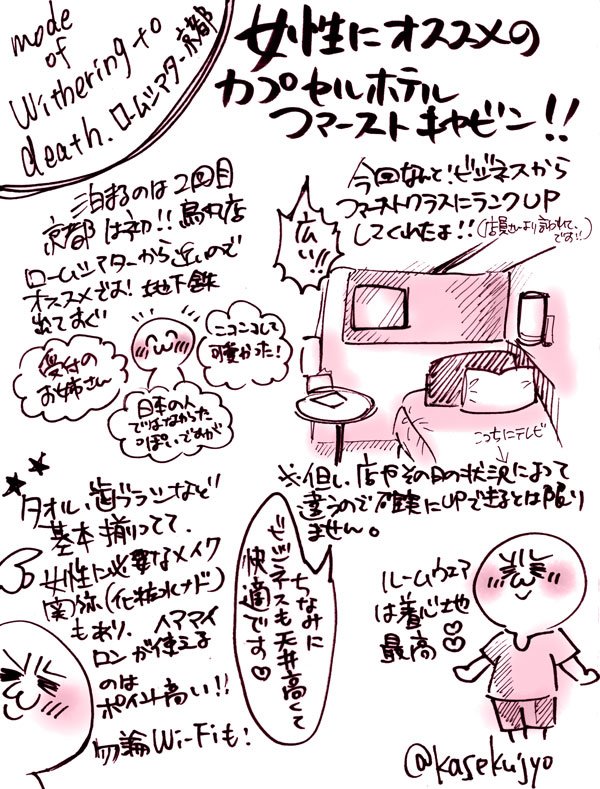 mode
of
Withering to
death. ロームシアター京都
女性にオススメの
カプセルホテル
ファーストキャビン!!
今回なんと!ビジネスから
ファーストクラスにランクUP
してくれたよ!!(店員さんより言われて、
です!!)
広い!!
泊まるのは2回目
京都は初!!烏丸店
ロームシアターから近いので
オススメでよ!地下鉄
出てすぐ
受付の
お姉さん
ニコニコして
可愛かった!
日本の人
ではなかった
っぽいですが
こっちにテレビ
※但し、店やその日の状況によって
違うので確実にUPできるとは限り
ません。
タオル、歯ブラシなど
基本揃ってて、
女性に必要なメイク
関弥(化粧水ナド)
もあり、ヘアアイ
ロンが使える
のは
ポイント高い!!
勿論Wi-Fiも!
ちなみに
ビジネスも天井高くて
快適です♡
ルームウェア
は着心地
最高♡♡
@kasekijyo